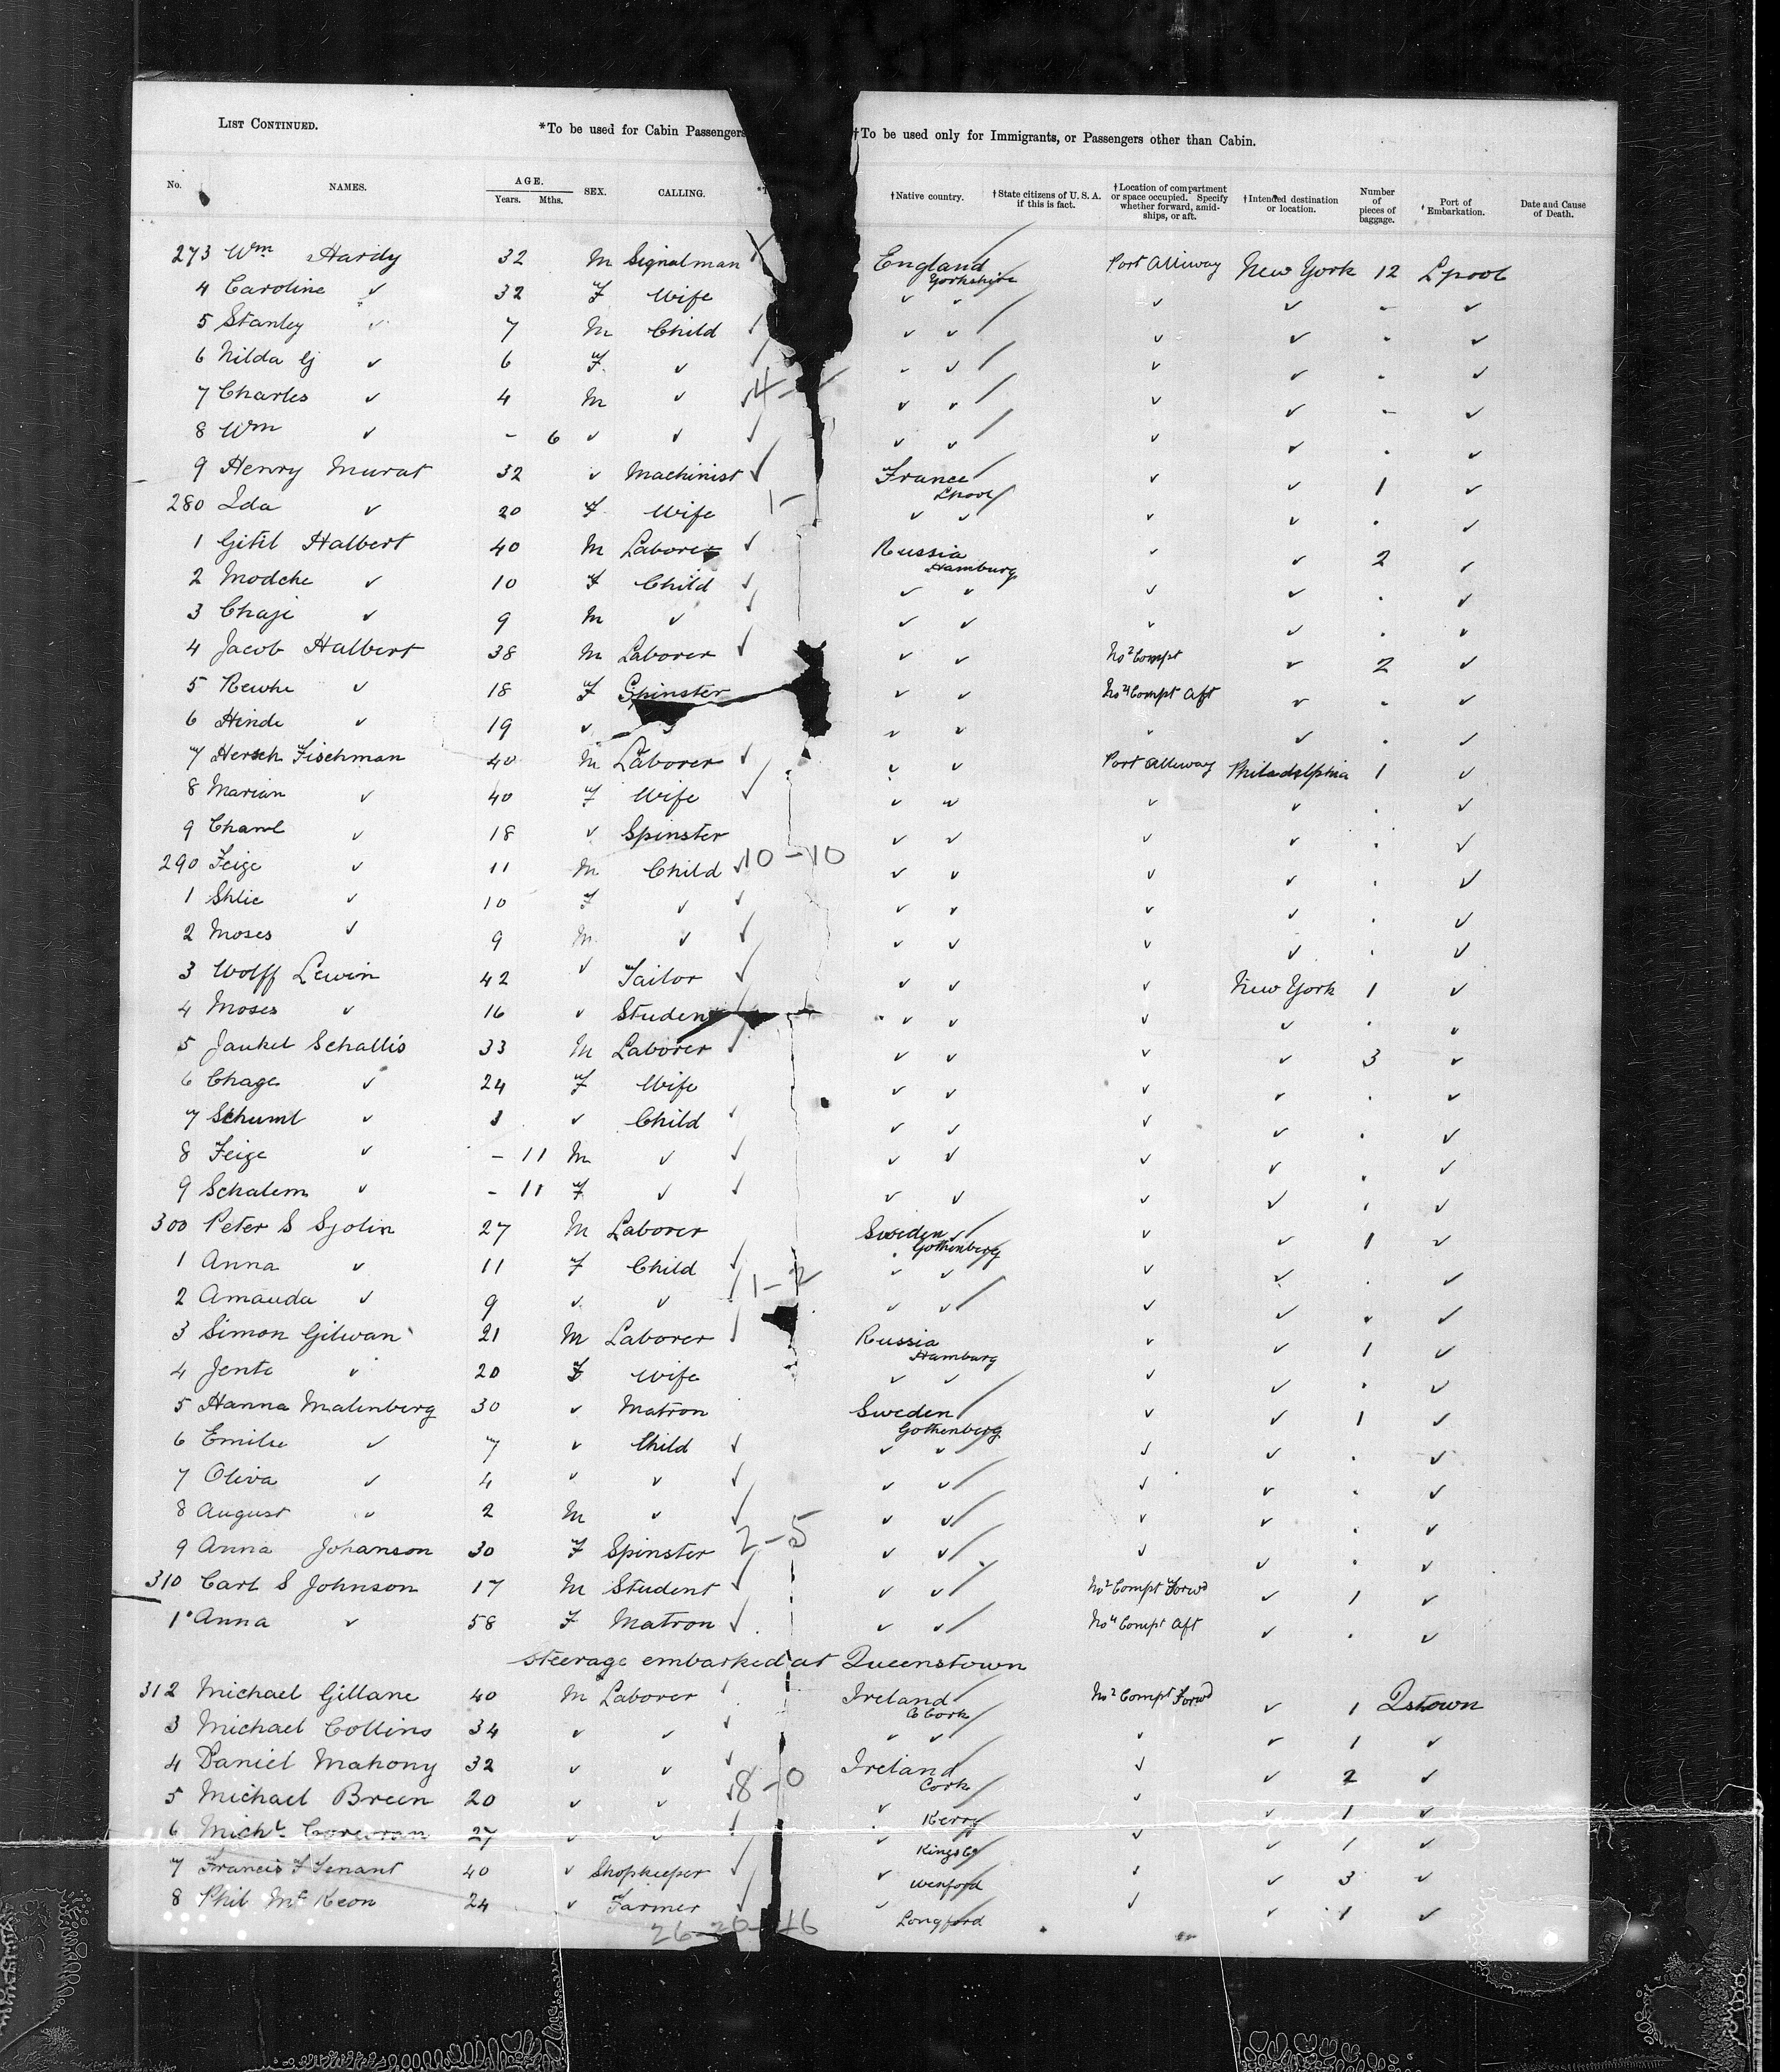 LIST CONTINUED. *To be used for Cabin Passengers †To be used only for Immigrants, or Passengers other than Cabin.
No. NAMES. AGE. Years. Mths. SEX. CALLING. †Native country. †State citizens of U. S. A. if this is fact. †Location of compartment or space occupied. Specify whether forward, amidships, or aft. †Intended destination or location. Number of pieces of baggage. †Port of Embarkation. Date and Cause of Death.
273 Wm Hardy 32 M Signalman England Yorkshire Port Alliway New York 12 Lpool
4 Caroline ✓ 32 F Wife ✓ ✓ ✓ ✓ - ✓
5 Stanley ✓ 7 M Child ✓ ✓ ✓ ✓ ✓ . ✓
6 Hilda G ✓ 6 F ✓ ✓ ✓ ✓ ✓ . ✓
7 Charles ✓ 4 M ✓ ✓ 4- ✓ ✓ ✓ ✓ - ✓
8 Wm ✓ - 6 ✓ ✓ ✓ ✓ ✓ ✓ ✓ . ✓
9 Henry Murat 32 ✓ Machinist ✓ France Lpool ✓ ✓ 1 ✓
280 Ida ✓ 20 F Wife 1- ✓ ✓ ✓ ✓ . ✓
1 Gitil Halbert 40 M Laborer ✓ Russia Hamburg ✓ ✓ 2 ✓
2 Modche ✓ 10 F Child ✓ ✓ ✓ ✓ ✓ . ✓
3 Chaje ✓ 9 M ✓ ✓ ✓ ✓ ✓ ✓ . ✓
4 Jacob Halbert 38 M Laborer ✓ ✓ ✓ No 2 Compt ✓ 2 ✓
5 Rewke ✓ 18 F Spinster ✓ ✓ No 4 Compt Aft ✓ . ✓
6 Hinde ✓ 19 ✓ ✓ ✓ ✓ ✓ . ✓
7 Hersch Fischman 40 M Laborer ✓ ✓ ✓ Port Alliway Philadelphia 1 ✓
8 Marian ✓ 40 F Wife ✓ ✓ ✓ ✓ ✓ . ✓
9 Chawl ✓ 18 ✓ Spinster ✓ ✓ ✓ ✓ . ✓
290 Feige ✓ 11 M Child ✓ 10-10 ✓ ✓ ✓ ✓ . ✓
1 Shlie ✓ 10 F ✓ ✓ ✓ ✓ ✓ ✓ . ✓
2 Moses ✓ 9 M ✓ ✓ ✓ ✓ ✓ ✓ . ✓
3 Wolff Lewin 42 ✓ Tailor ✓ ✓ ✓ ✓ New York 1 ✓
4 Moses ✓ 16 ✓ Student ✓ ✓ ✓ ✓ ✓ . ✓
5 Jankel Schallis 33 M Laborer ✓ ✓ ✓ ✓ ✓ 3 ✓
6 Chage ✓ 24 F Wife ✓ ✓ ✓ ✓ . ✓
7 Schuml ✓ ✓ Child ✓ ✓ ✓ ✓ ✓ . ✓
8 Feige ✓ - 11 M ✓ ✓ ✓ ✓ ✓ ✓ . ✓
9 Schalem ✓ - 11 F ✓ ✓ ✓ ✓ ✓ ✓ . ✓
300 Peter S Sjolin 27 M Laborer Sweden Gothenberg ✓ ✓ 1 ✓
1 Anna ✓ 11 F Child ✓ 1-2 ✓ ✓ ✓ ✓ . ✓
2 Amauda ✓ 9 ✓ ✓ ✓ ✓ ✓ ✓ ✓ . ✓
3 Simon Gilwan 21 M Laborer ✓ Russia Hamburg ✓ ✓ 1 ✓
4 Jente ✓ 20 F Wife ✓ ✓ ✓ ✓ . ✓
5 Hanna Malenberg 30 ✓ Matron Sweden Gothenberg ✓ ✓ 1 ✓
6 Emilie ✓ 7 ✓ Child ✓ ✓ ✓ ✓ ✓ . ✓
7 Oliva ✓ 4 ✓ ✓ ✓ ✓ ✓ ✓ ✓ . ✓
8 August ✓ 2 M ✓ ✓ ✓ ✓ ✓ ✓ . ✓
9 Anna Johanson 30 F Spinster 2-5 ✓ ✓ ✓ ✓ . ✓
310 Carl S Johnson 17 M Student ✓ ✓ ✓ No 2 Compt Forwd ✓ 1 ✓
1 Anna ✓ 58 F Matron ✓ ✓ ✓ No 4 Compt Aft ✓ . ✓
Steerage embarked at Queenstown
312 Michael Gillane 40 M Laborer ✓ Ireland Co Cork No 2 Compt Forwd ✓ 1 Qstown
3 Michael Collins 34 ✓ ✓ ✓ ✓ ✓ ✓ ✓ 1 ✓
4 Daniel Mahony 32 ✓ ✓ ✓ Ireland Cork ✓ ✓ 2 ✓
5 Michael Breen 20 ✓ ✓ ✓ 8-0 ✓ Kerry ✓ ✓ 1 ✓
6 Michl Corcoran 27 ✓ ✓ ✓ ✓ Kings Co ✓ ✓ 1 ✓
7 Francis F Tenant 40 ✓ Shopkeeper ✓ ✓ Wexford ✓ ✓ 3 ✓
8 Phil McKeon 24 ✓ Farmer ✓ ✓ Longford ✓ ✓ 1 ✓
26-20-46